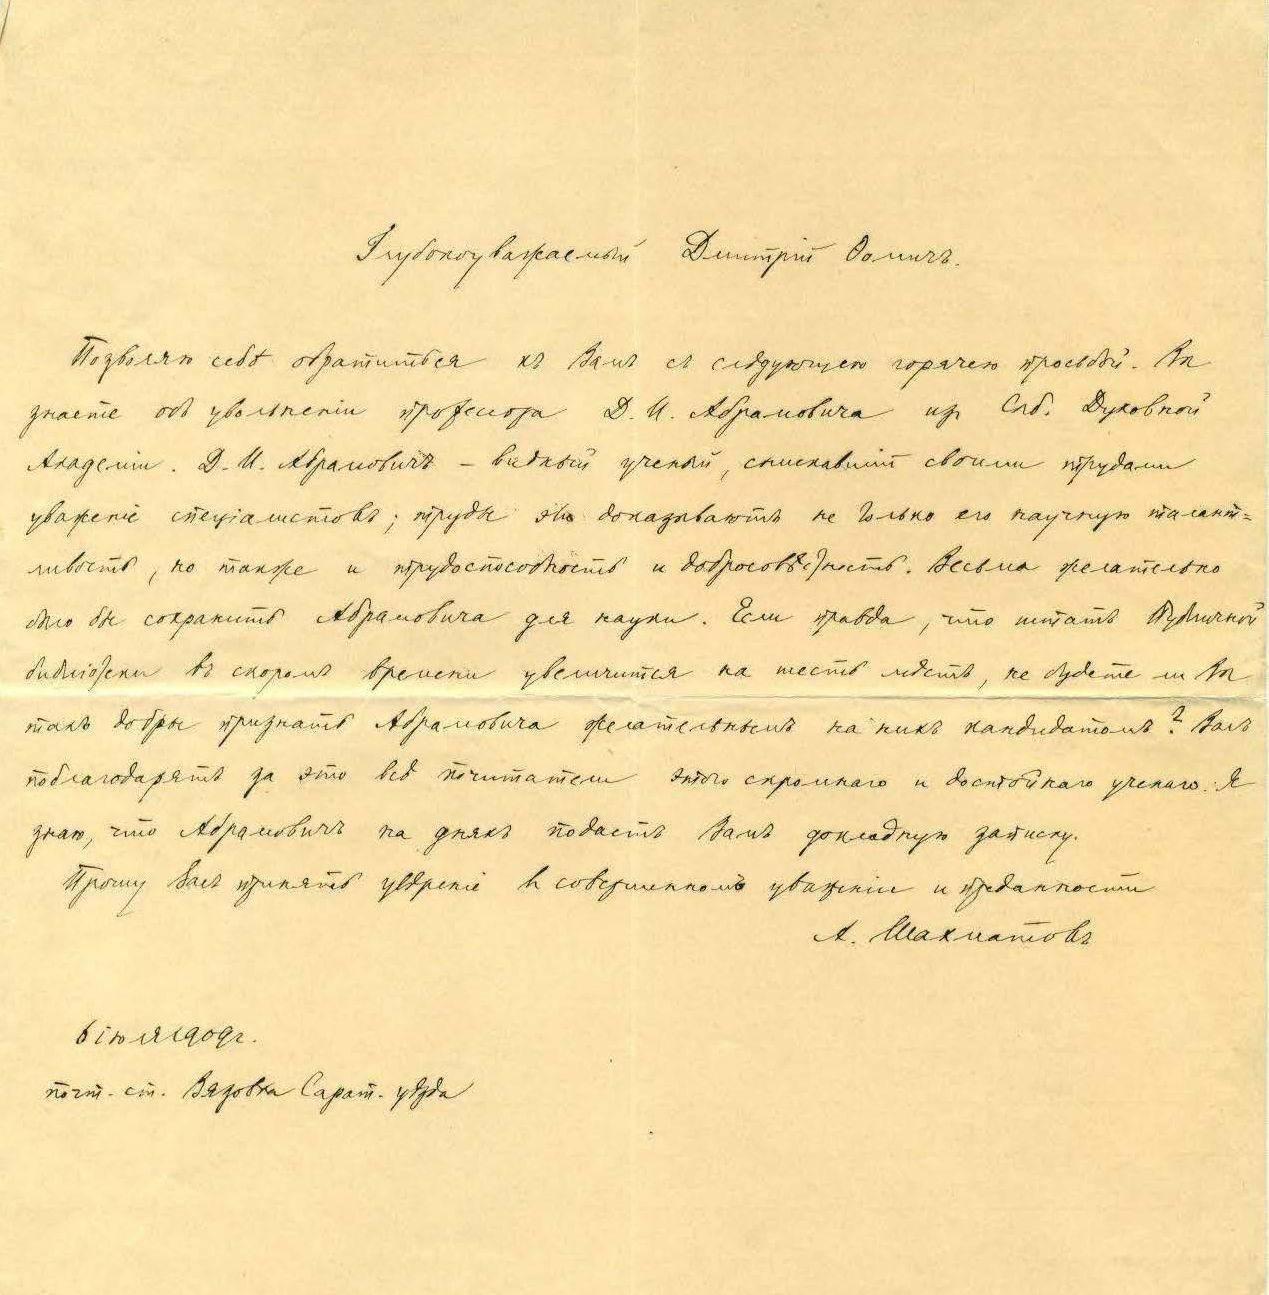 Глубокоуважаемый Дмитрій Ѳомичъ.
Позволяю себѣ обратиться къ Вамъ съ слѣдующею горячею просьбой. Вы
знаете объ увольненіи профессора Д. И. Абрамовича из Спб. Духовной
Академіи. Д. И. Абрамовичъ – видный ученый, снискавшій своими трудами
уваженіе спеціалистовъ; труды эти доказываютъ не только его научную талант=
ливость, но также и трудоспособность и добросовѣстность. Весьма желательно
было бы сохранить Абрамовича для науки. Если правда, что штатъ Публичной
библіотеки въ скоромъ времени увеличится на шесть мѣстъ, не будете ли Вы
такъ добры признать Абрамовича желательнымъ на нихъ кандидатомъ? Васъ
поблагодарятъ за это всѣ почитатели этого скромнаго и достойнаго ученаго. Я
знаю, что Абрамовичъ на дняхъ подастъ Вамъ докладную записку.
Прошу Васъ принять увѣреніе в совершенномъ уваженіи и преданности
А. Шахматовъ
6 іюля 1909 г.
почт. ст. Вязовка Сарат. уѣзда